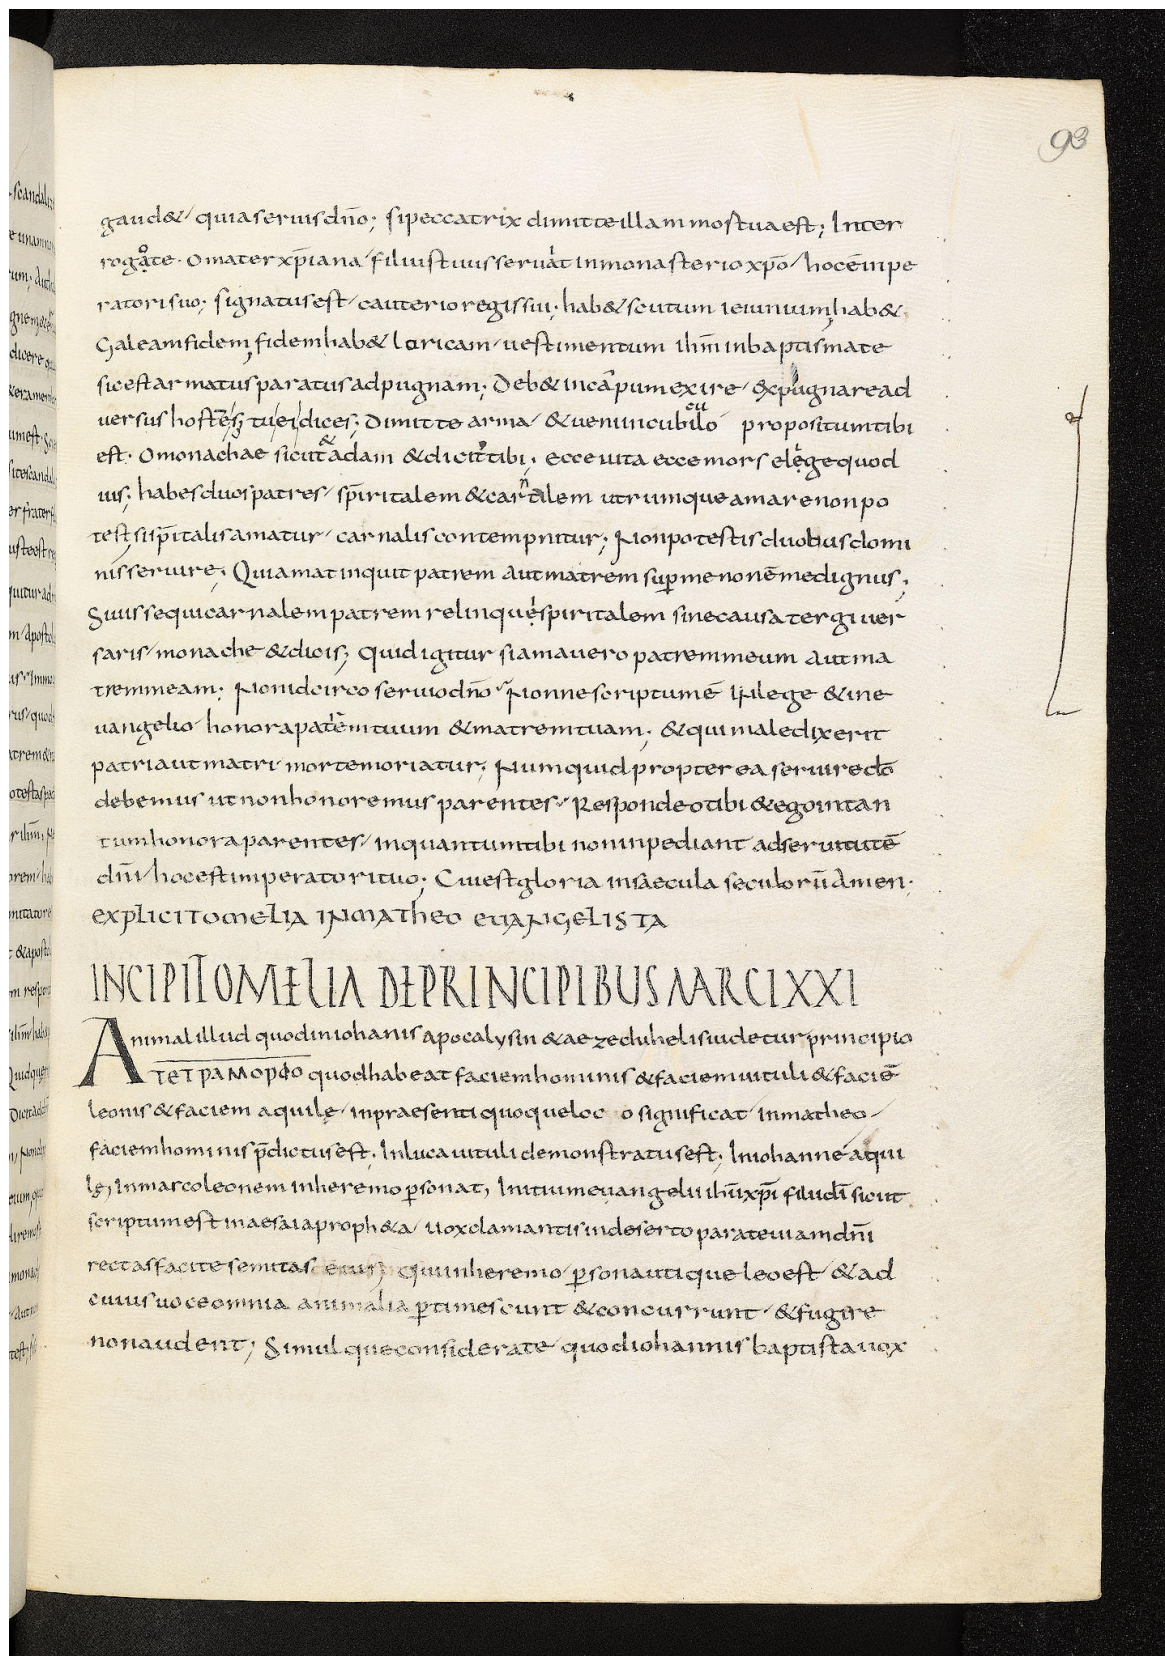 93
gaud& quia seruis dn̄o; si peccatrix dimitte illam mos tua est; Inter
rogate. O mater xp̄iana filius tuus seruat in monasterio xp̄o hoc ē inpe
ratori suo; signatus est cauterio regis sui; hab& scutum ieiunium, hab&
Galeam fidem, fidem hab& loricam uestimentum ih̄m in baptismate
sic est armatus paratus ad pugnam; Deb& in cāpum exire expugnare ad
versus hostes; tu ei dices; Dimitte arma & ueni in cubilo propositum tibi
est. O monachae sicut & adam & dicit tibi; ecce uita ecce mors elege quod
uis; habes duos patres sp̄iritalem & carnalem utrumque amare non po
test, si sp̄italis amatur carnalis contempnitur; Non potestis duobus domi
nis seruire; Qui amat inquit patrem aut matrem sup̄ me non ē me dignus;
Si uis sequi carnalem patrem relinque spiritalem sine causa tergi uer
saris monache & dicis; Quid igitur si amauero patrem meum aut ma
trem meam; Non idcirco seruio dn̄o Nonne scriptum ē In lege & in e
uangelio honora patrem tuum & matrem tuam; & qui maledixerit
patri aut matri morte moriatur; Numquid propter ea seruire dō
debemus ut non honoremus parentes Respondeo tibi & ego in tan
tum honora parentes in quantum tibi non inpediant ad seruitutē
dn̄i hoc est imperatori tuo; Cui est gloria in saecula seculorū Amen.
EXPLICIT OMELIA IN MATHEO EUANGELISTA
INCIPIT OMELIA DE PRINCIPIBUS MARCI XXI
Animal illud quod in iohanis apocalysin & aezeduhelis uidetur principio
ΤΕΤΡΑΜΟΡΦΟ quod habeat faciem hominis & faciem uituli & faciē
leonis & faciem aquile in praesenti quoque loco significat in matheo
faciem hominis p̄dictus est; In luca uituli demonstratus est; In iohanne aqui
le, In marco leonem in heremo p̄sonat, Initium euangelii ih̄u xp̄i filii dī sicut
scriptum est in aesaia proph&a uox clamantis in deserto parate uiam dn̄i
rectas facite semitas eius; Qui in heremo p̄sonat utique leo est & ad
cuius uoce omnia animalia p̄timescunt & concurrunt & fugire
non audent; Simulque considerate quod iohannis baptista uox